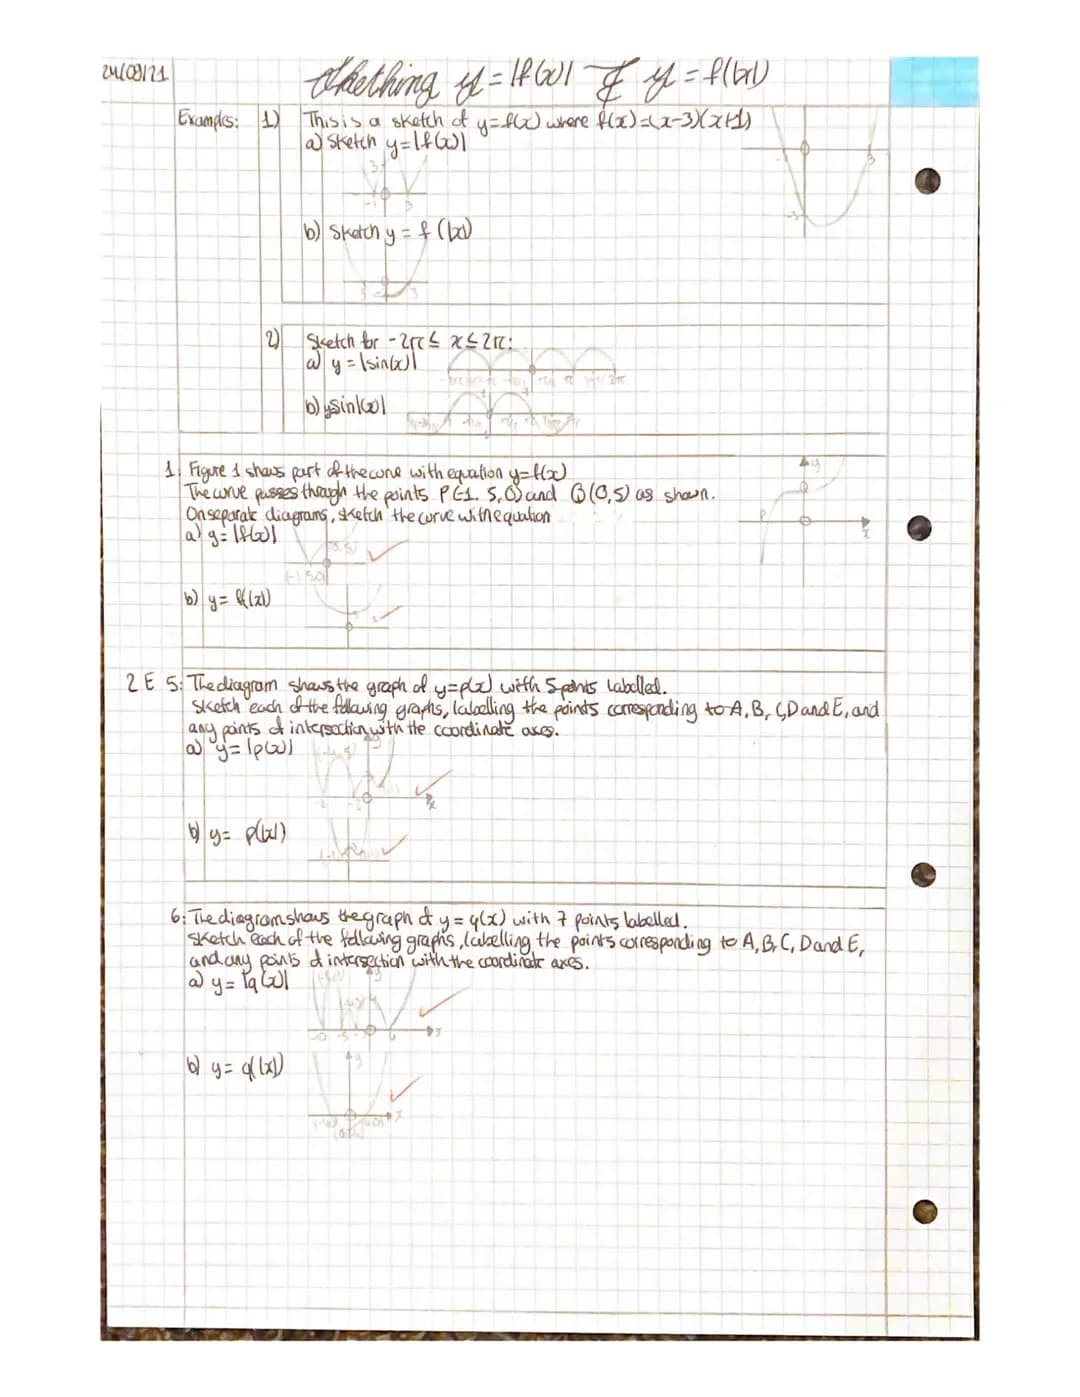 24/09/21
Skething y = |f(x)| & y = f(|x|)
Examples: 1) This is a sketch of y=f(x) where f(x)=(x-3)(x+1)
a) Sketch y=|f(x)|
3
-1 3
-3
3
b) Sketch y = f(|x|)
3 3
2) Sketch for -2π ≤ x ≤ 2π:
a) y = |sin(x)|
b) y sin|(x)|
1. Figure 1 shows part of the curve with equation y=f(x)
The curve passes through the points P(-1.5,0) and Q(0,5) as shown.
On separate diagrams, sketch the curve with equation
a) y= |f(x)|
(0,5)
(-1.5,0)
y
P
x
b) y= f(|x|)
2E 5: The diagram shows the graph of y=p(x) with 5 points labelled.
Sketch each of the following graphs, labelling the points corresponding to A, B, C, D and E, and
any points of intersection with the coordinate axes.
a) y= |p(x)|
y
-2
x
b) y= p(|x|)
6: The diagram shows the graph of y= q(x) with 7 points labelled.
Sketch each of the following graphs, labelling the points corresponding to A, B, C, D and E,
and any points of intersection with the coordinate axes.
a) y= |q(x)|
y
-10 -5 4 x
b) y= q(|x|)
y
x